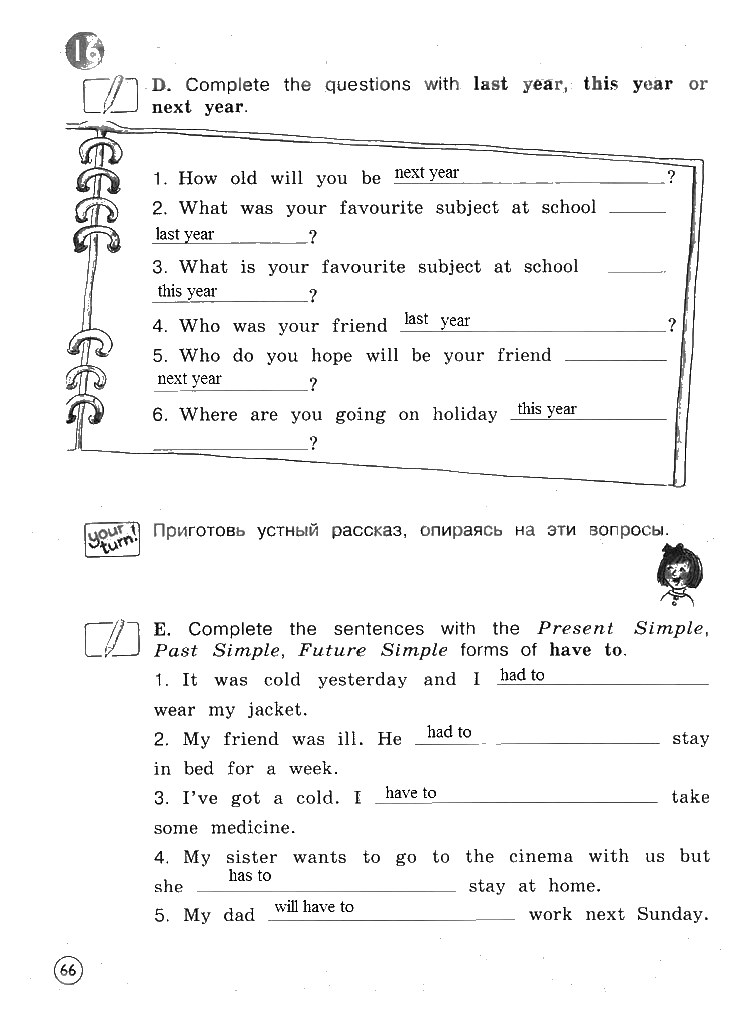 16
D. Complete the questions with last year, this year or
next year.
1. How old will you be next year ?
2. What was your favourite subject at school
last year ?
3. What is your favourite subject at school
this year ?
4. Who was your friend last year ?
5. Who do you hope will be your friend
next year ?
6. Where are you going on holiday this year
?
your turn!
Приготовь устный рассказ, опираясь на эти вопросы.
E. Complete the sentences with the Present Simple,
Past Simple, Future Simple forms of have to.
1. It was cold yesterday and I had to
wear my jacket.
2. My friend was ill. He had to stay
in bed for a week.
3. I've got a cold. I have to take
some medicine.
4. My sister wants to go to the cinema with us but
she has to stay at home.
5. My dad will have to work next Sunday.
66